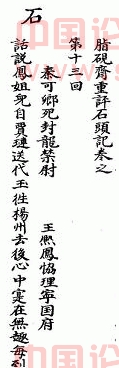 石
脂硯齋重評石頭記卷之
第十三回
秦可卿死封龍禁尉 王熈鳳協理寧国府
話說鳳姐兒自賈璉送代玉徃楊州去後心中寔在無趣每到
中国论
中国论